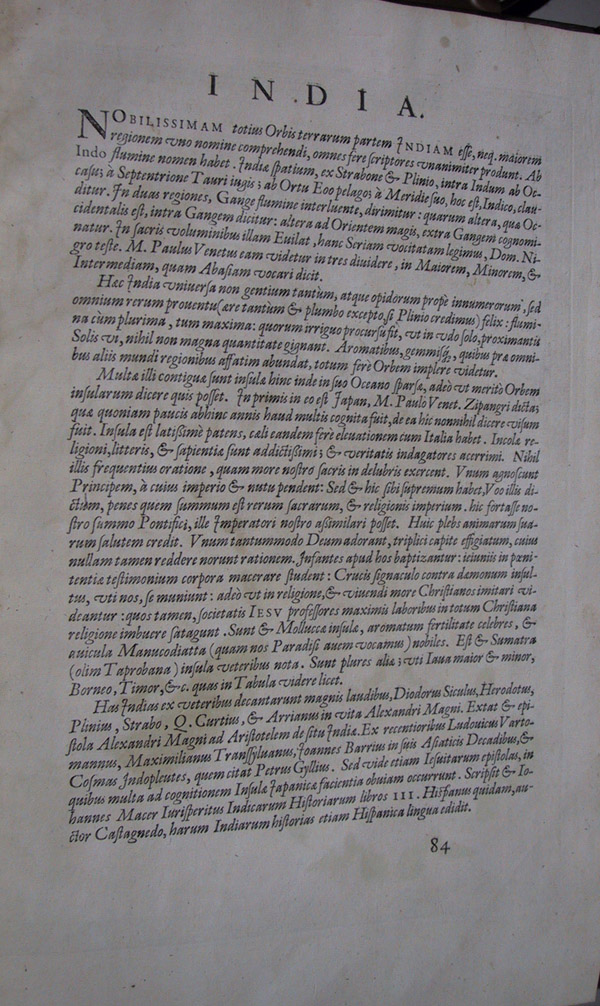 INDIA.
NOBILISSIMAM totius Orbis terrarum partem INDIAM esse, neq. maiorem
regionem vno nomine comprehendi, omnes fere scriptores vnanimiter produnt. Ab
Indo flumine nomen habet. Indiæ spatium, ex Strabone & Plinio, intra Indum ab Oc-
casu; à Septentrione Tauri iugis; ab Ortu Eoo pelago; à Meridie suo, hoc est, Indico, clau-
ditur. In duas regiones, Gange flumine interluente, dirimitur: quarum altera, quæ Oc-
cidentalis est, intra Gangem dicitur: altera ad Orientem magis, extra Gangem cognomi-
natur. In sacris voluminibus illam Euilat, hanc Seriam vocitatam legimus, Dom. Ni-
gro teste. M. Paulus Venetus eam videtur in tres diuidere, in Maiorem, Minorem, &
Intermediam, quam Abasiam vocari dicit.
Hæc India vniuersa non gentium tantùm, atque opidorum propè innumerorum, sed
omnium rerum prouentu (ære tantùm & plumbo excepto, si Plinio credimus) felix: flumi-
na cùm plurima, tum maxima: quorum irriguo procursu fit, vt in vdo solo, proximantis
Solis vi, nihil non magna quantitate gignant. Aromatibus, gemmisq, quibus præ omni-
bus aliis mundi regionibus affatim abundat, totum ferè Orbem implere videtur.
Multæ illi contiguæ sunt insulæ hinc inde in suo Oceano sparsæ, adeò vt meritò Orbem
insularum dicere quis posset. In primis in eo est Japan, M. Paulo Venet. Zipangri dicta;
quæ quoniam paucis abhinc annis haud multis cognita fuit, de ea hic nonnihil dicere visum
fuit. Insula est latissimè patens, cæli eandem ferè eleuationem cum Italia habet. Incolæ re-
ligioni, litteris, & sapientiæ sunt addictissimi; & veritatis indagatores acerrimi. Nihil
illis frequentius oratione, quam more nostro sacris in delubris exercent. Vnum agnoscunt
Principem, à cuius imperio & nutu pendent: Sed & hic sibi supremum habet, Voo illis di-
ctum, penes quem summum est rerum sacrarum, & religionis imperium. hic fortasse no-
stro summo Pontifici, ille Imperatori nostro assimilari posset. Huic plebs animarum sua-
rum salutem credit. Vnum tantummodo Deum adorant, triplici capite effigiatum, cuius
nullam tamen reddere norunt rationem. Infantes apud hos baptizantur: ieiuniis in pæni-
tentiæ testimonium corpora macerare student: Crucis signaculo contra dæmonum insul-
tus, vti nos, se muniunt: adeò vt in religione, & viuendi more Christianos imitari vi-
deantur: quos tamen, societatis IESV professores maximis laboribus in totum Christiana
religione imbuere satagunt. Sunt & Moluccæ insulæ, aromatum fertilitate celebres, &
auicula Manucodiatta (quam nos Paradisi auem vocamus) nobiles. Est & Sumatra
(olim Taprobana) insula veteribus nota. Sunt plures aliæ; vti Iaua maior & minor,
Borneo, Timor, &c. quas in Tabula videre licet.
Has Indias ex veteribus decantarunt magnis laudibus, Diodorus Siculus, Herodotus,
Plinius, Strabo, Q. Curtius, & Arrianus in vita Alexandri Magni. Extat & epi-
stola Alexandri Magni ad Aristotelem de situ Indiæ. Ex recentioribus Ludouicus Varto-
mannus, Maximilianus Transsyluanus, Joannes Barrius in suis Asiaticis Decadibus, &
Cosmas Indopleutes, quem citat Petrus Gyllius. Sed vide etiam Iesuitarum epistolas, in
quibus multa ad cognitionem Insulæ Japanicæ facientia obuiam occurrunt. Scripsit & Io-
hannes Macer Iurisperitus Indicarum Historiarum libros III. Hispanus quidam, au-
ctor Castagnedo, harum Indiarum historias etiam Hispanica lingua edidit.
84